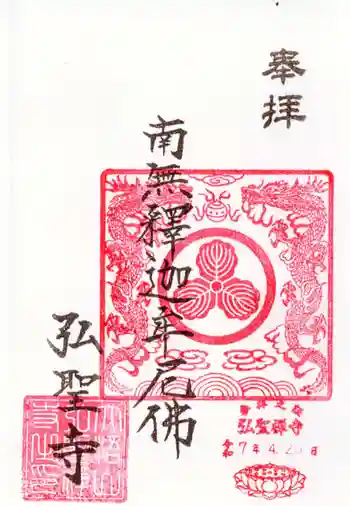 奉拝
南無釋迦牟尼佛
弘聖寺
弘聖禅寺
令和7年4.20日